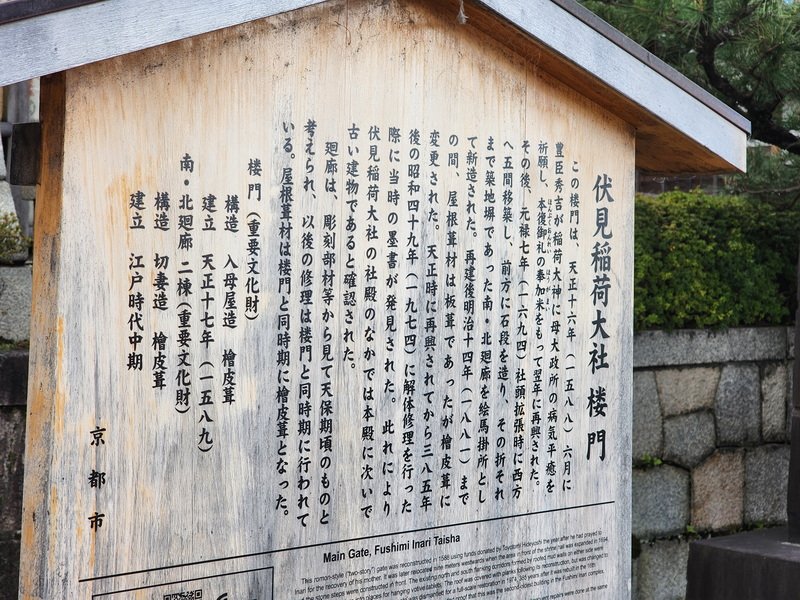 伏見稲荷大社 楼門
この楼門は、天正十六年（一五八八）六月に
豊臣秀吉が稲荷大神に母大政所の病気平癒を
祈願し、本復御礼の奉加米をもって翌年に再興された。
その後、元禄七年（一六九四）社頭拡張時に西方
へ五間移築し、前方に石段を造り、その折それ
まで築地塀であった南・北廻廊を絵馬掛所とし
て新造された。再建後明治十四年（一八八一）まで
の間、屋根葺材は板葺であったが檜皮葺に
変更された。天正時に再興されてから三八五年
後の昭和四十九年（一九七四）に解体修理を行った
際に当時の墨書が発見された。此れにより
伏見稲荷大社の社殿のなかでは本殿に次いで
古い建物であると確認された。
廻廊は、彫刻部材等から見て天保期頃のものと
考えられ、以後の修理は楼門と同時期に行われて
いる。屋根葺材は楼門と同時期に檜皮葺となった。
楼門（重要文化財）
構造 入母屋造 檜皮葺
建立 天正十七年（一五八九）
南・北廻廊 二棟（重要文化財）
構造 切妻造 檜皮葺
建立 江戸時代中期
京都市
Main Gate, Fushimi Inari Taisha
This roman-style ("two-story") gate was reconstructed in 1588 using funds donated by Toyotomi Hideyoshi the year after he had prayed to
Inari for the recovery of his mother. It was later relocated nine meters westwards when the area in front of the shrine hall was expanded in 1694,